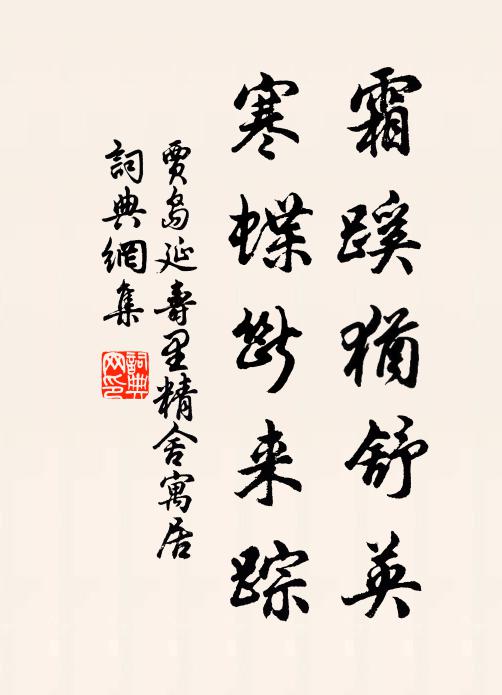 霜蹊猶舒英
寒蝶断来踪
賈島延壽里精舍寓居
詞典網集
詞典网印